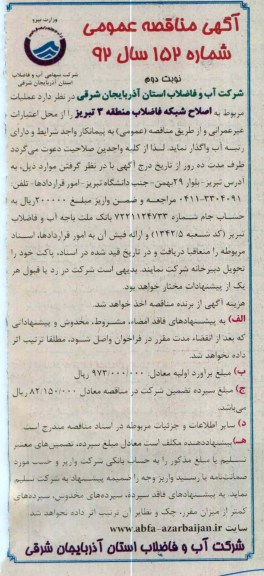 وزارت نیرو
آگهی مناقصه عمومی
شماره ۱۵۲ سال ۹۲
شرکت سهامی آب و فاضلاب
استان آذربایجان شرقی
نوبت دوم
شرکت آب و فاضلاب استان آذربایجان شرقی در نظر دارد عملیات
مربوط به اصلاح شبکه فاضلاب منطقه ۳ تبریز را از محل اعتبارات
غیرعمرانی و از طریق مناقصه (عمومی) به پیمانکار واجد شرایط و دارای
رتبه آب واگذار نماید. لذا از کلیه واجدین صلاحیت دعوت می‌گردد
ظرف مدت ده روز از تاریخ درج آگهی با در نظر گرفتن موارد ذیل، به
آدرس تبریز- بلوار ۲۹ بهمن- جنب دانشگاه تبریز- امور قراردادها- تلفن:
۰۴۱۱-۳۳۰۴۰۹۱ مراجعه و ضمن واریز مبلغ ۲۰۰۰۰۰ ریال به
حساب جام شماره ۷۲۲۱۱۲۴۷۳۳ بانک ملت باجه آب و فاضلاب
تبریز (کد شعبه ۱۳۴۲/۵) و ارائه فیش آن به امور قراردادها، اسناد
مربوطه را متعاقبا دریافت و در تاریخ قید شده در اسناد، پاکت خود را
تحویل دبیرخانه شرکت نمایند، بدیهی است شرکت در رد یا قبول هر
یک از پیشنهادات مختار خواهد بود.
هزینه آگهی از برنده مناقصه اخذ خواهد شد.
الف) به پیشنهادهای فاقد امضاء، مشروط، مخدوش و پیشنهاداتی
که بعد از انقضاء مدت مقرر در فراخوان واصل شود، مطلقا ترتیب اثر
داده نخواهد شد.
ب) مبلغ برآورد اولیه معادل ۹۷۳/۰۰۰/۰۰۰ ریال
ج) مبلغ سپرده تضمین شرکت در مناقصه معادل ۸۲/۱۵۰/۰۰۰ ریال
می‌باشد.
د) سایر اطلاعات و جزئیات مربوطه در اسناد مناقصه مندرج است
هـ) پیشنهاددهنده مکلف است معادل مبلغ سپرده، تضمین‌های معتبر
تسلیم یا مبلغ مذکور را به حساب بانکی شرکت واریز و حسب مورد
ضمانت‌نامه یا رسید واریز وجه را ضمیمه پیشنهاد به شرکت تسلیم
نماید. به پیشنهادهای فاقد سپرده، سپرده‌های مخدوش، سپرده‌های
کمتر از میزان مقرر، چک و نظایر آن ترتیب اثر داده نخواهد شد.
سایت www.abfa-azarbaijan.ir
شرکت آب و فاضلاب استان آذربایجان شرقی